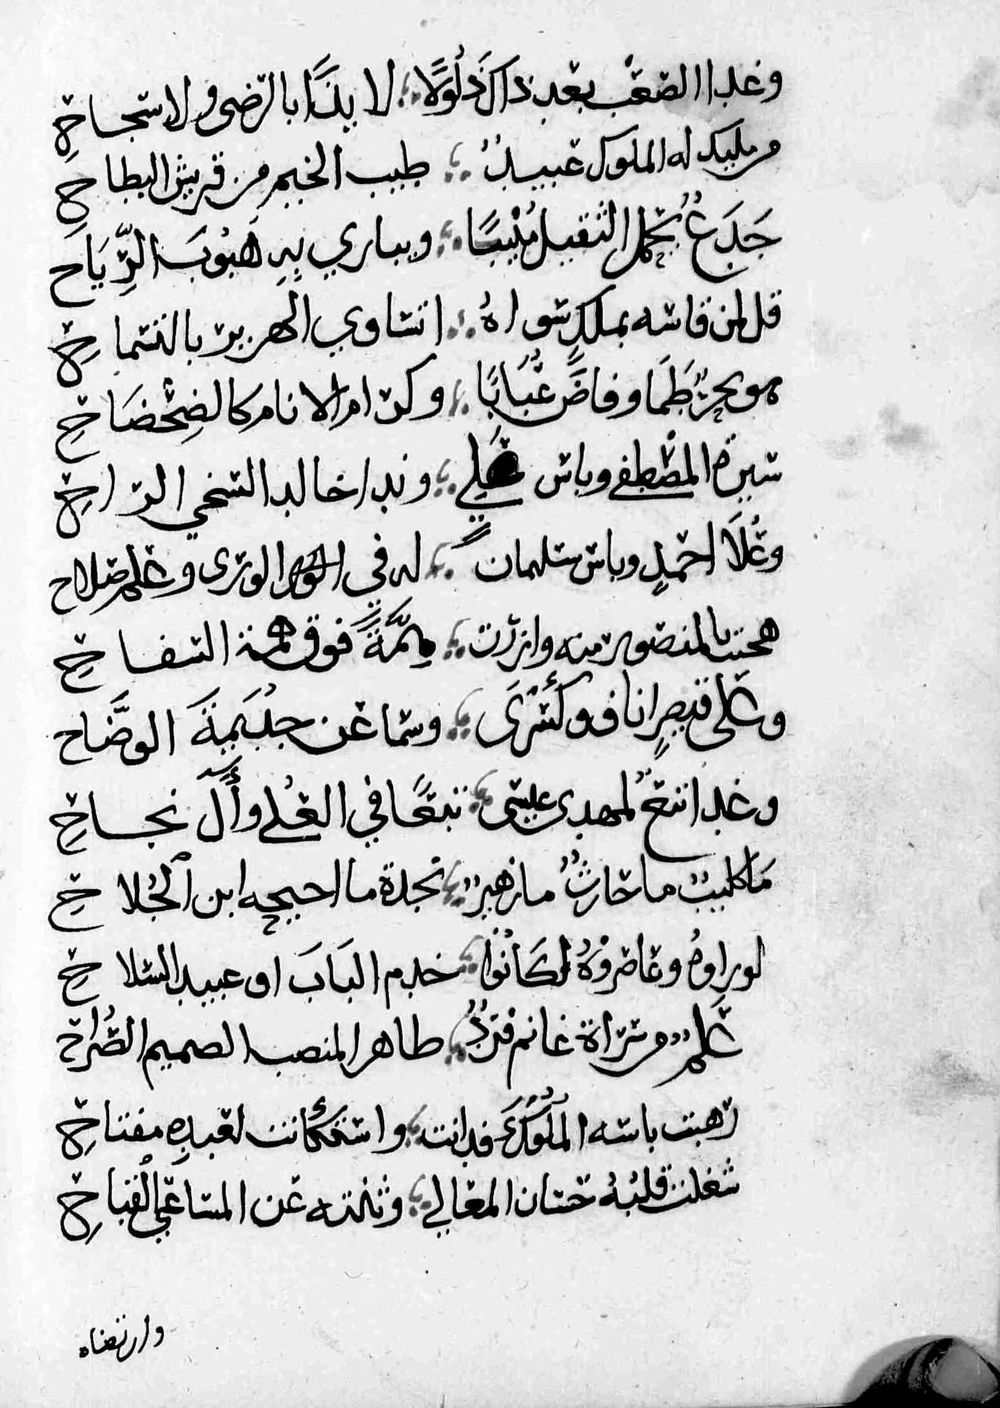 وغدا الصعب بعد ذاك ذلولًا ؛ لائذًا بالرضى والاستجاح
من يكد له الملوك عبيدٌ ؛ طيب الخيم من قريش البطاح
جذعٌ يحمل الثقيل مُنيبًا ؛ ويباري به هبُوبَ الرِّيَاح
قل لمن قاسه بملكٍ سواهُ ؛ اتساوي الهزبر بالتمساح
هو بحرٌ طَمَا وفاضَ عُبَابًا ؛ وكرام الانام كالضحضَاح
سيرة المصْطفى وباس علي ؛ وندا خالد السخي الراح
وعُلَا احمدٍ وباس سليمان ؛ له في الورى وعلم صلاح
همتٌ بالمنصور منه وازرت ؛ هِمَّةً فوق همة السفاح
وعَلى قيصرٍ اناف وكسْرَى ؛ وسما عن جذيمَةَ الوضَّاح
وغدا تبعٌ لمهدي عيسى ؛ تبعًا في العُلى وأَلّ نجاح
مَا كليبٌ ما حارثٌ ما زهيرٌ ؛ نجدة ما احيحه ابن الجُلاح
لو راوهُ وعاصروْهُ لَكَانُوا ؛ خدم البَابَ او عبيد السلاح
علمٌ من سراة غانم فردٌ ؛ طاهر المنصب الصميم الصُراح
رهبت باسه الملُوكُ فدانت ؛ واستكانت لعبدِهِ مفتاح
شغلت قلبهُ حسان المعالي ؛ وثنته عن المساعي القباح
وارتضاه